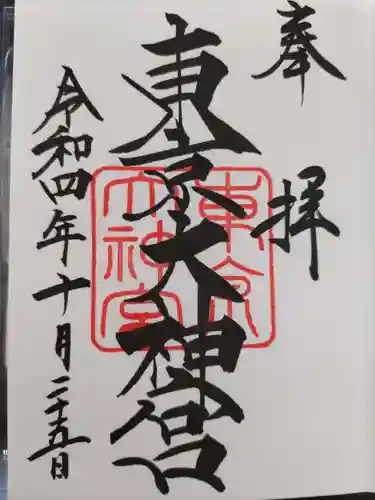 奉拝
東京大神宮
東京大神宮
令和四年十月二十五日